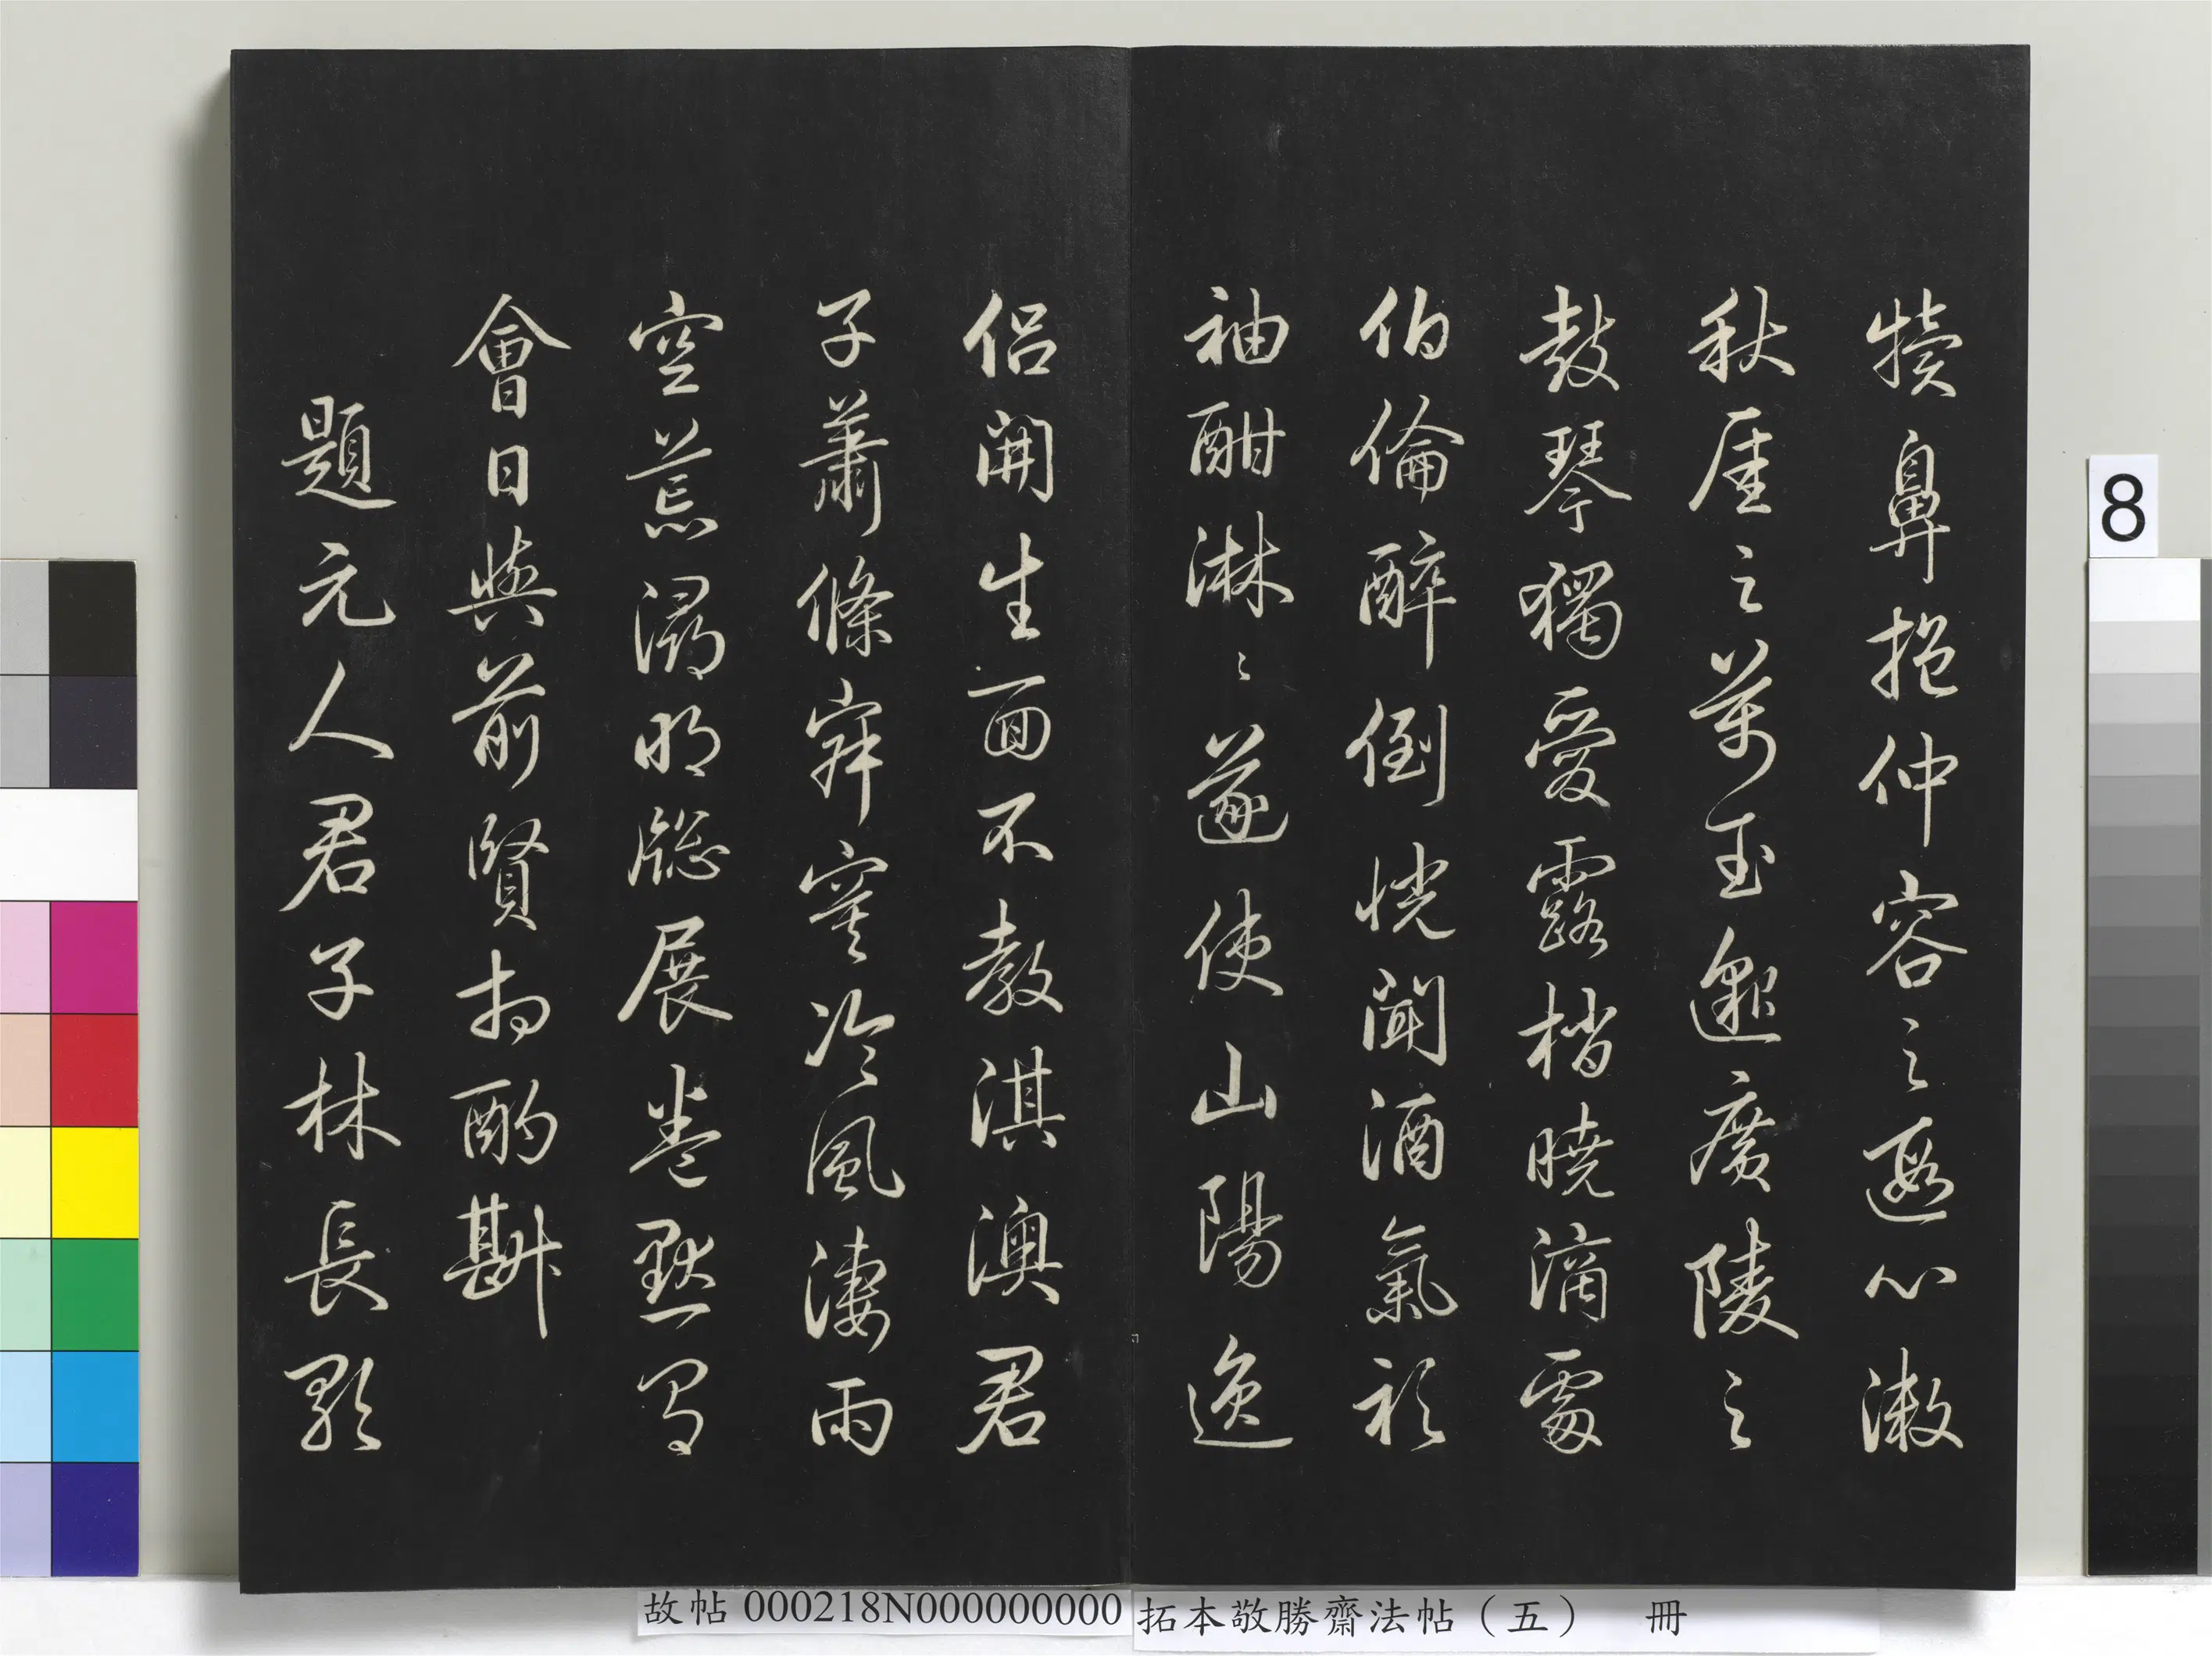 犢鼻挹仲容之遐心漱
秋厓之萬玉邈廣陵之
鼓琴獨愛露梢曉滴處
伯倫醉倒恍聞酒氣衫
袖酣淋〻遂使山陽逸
侶開生面不教淇澳君
子蕭條寂寞冷風淒雨
空荒潯明牕展卷默焉
會日與前賢相酌斟
題元人君子林長歌
8
故帖 000218N000000000 拓本敬勝齋法帖（五） 冊